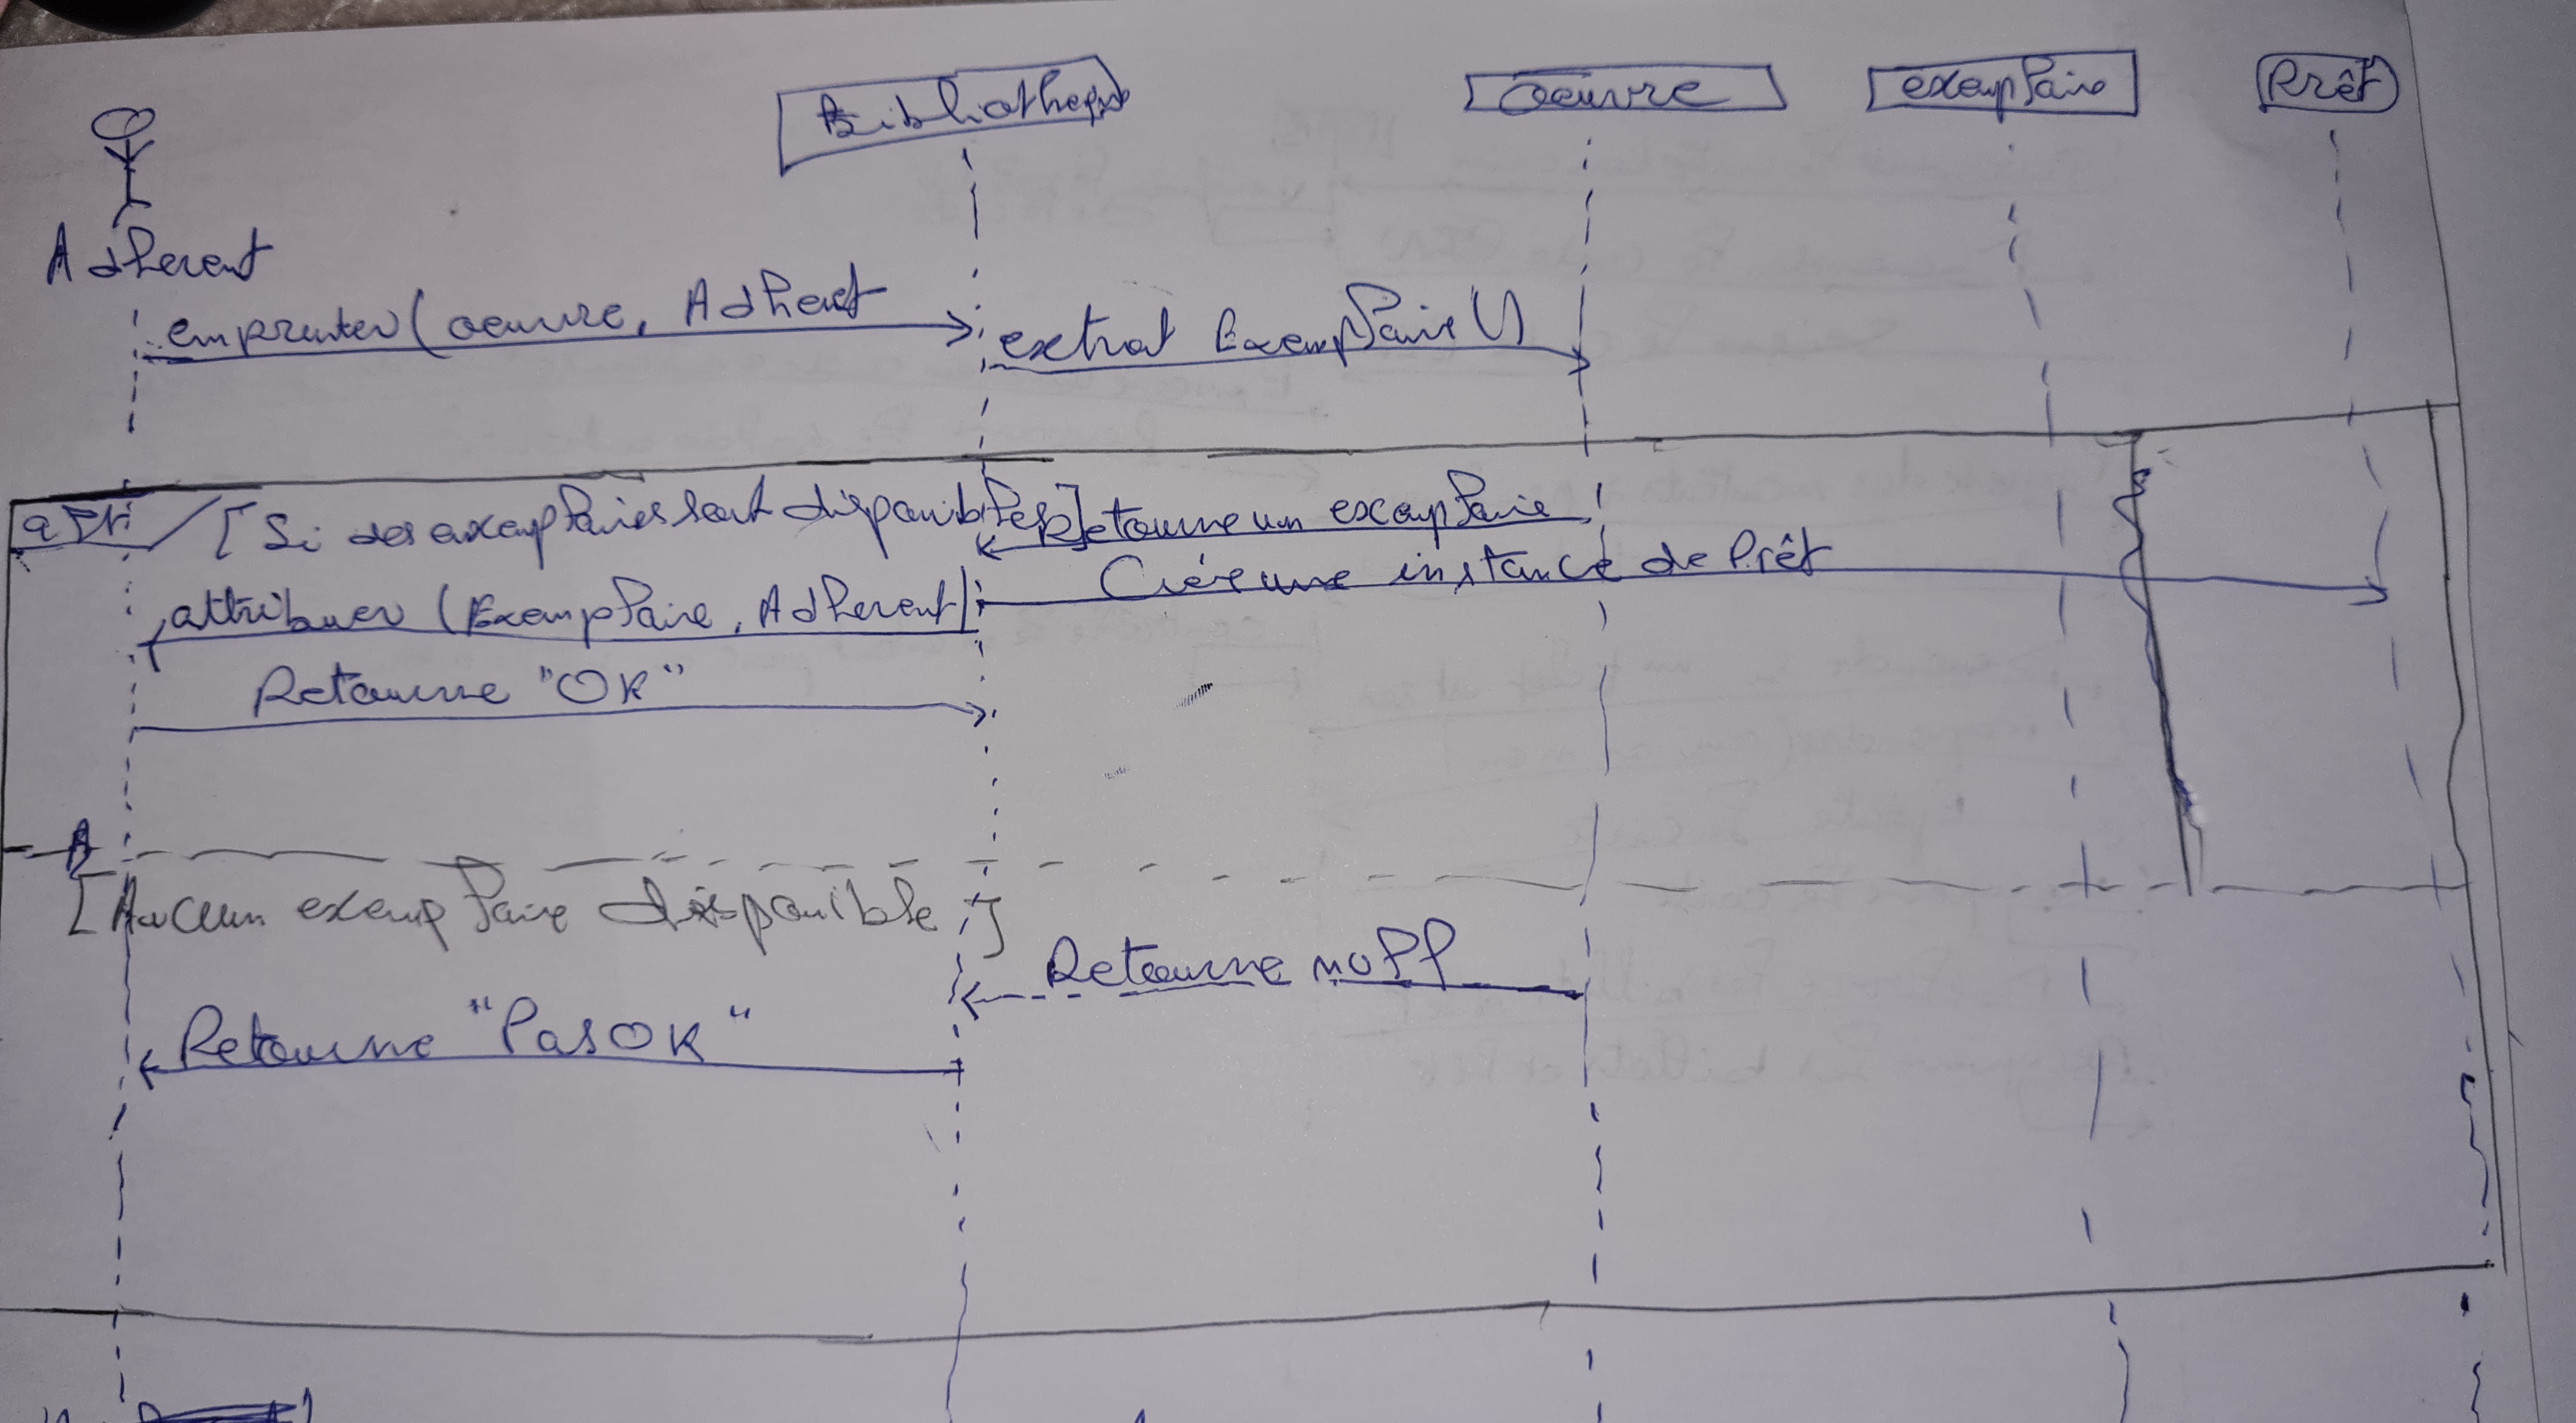 Bibliotheque
oeuvre
exemplaire
Prêt
Adherent
emprunter (oeuvre, Adherent
extrat Exemplaire ()
alt
[Si des exemplaires sont disponibles]
Retourne un exemplaire
Créer une instance de Prêt
attribuer (Exemplaire, Adherent)
Retourne "OK"
[Aucun exemplaire disponible]
Retourne null
Retourne "Pas OK"